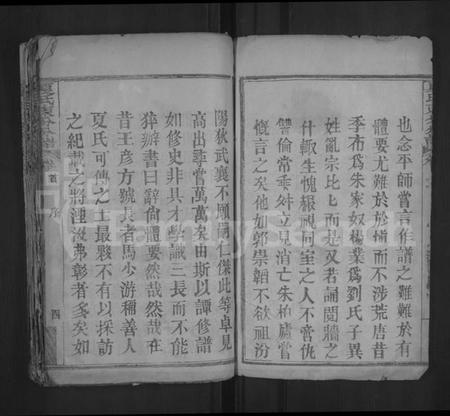 也念平師嘗言作譜之難難於有
體要尤難於於愼而不涉荒唐昔
季布爲朱家奴楊業爲劉氏子異
姓亂宗比比而是又若誦鬩牆之
什輒生愧報視同室之人不啻仇
讐倫常乖舛立見消亡朱柏廬嘗
慨言之矣他如郭崇韜不欲祖汾
陽狄武襄不願同仁傑此等卓見
高出尋嘗萬萬矣由斯以譚修譜
如修史非具才學識三長而不能
猝辦書曰辭尚體要然哉然哉在
昔王彥方號長者馬少游稱善人
夏氏可傳之士最夥不有以採訪
之紀載之將湮沒弗彰者多矣如
首
序
四